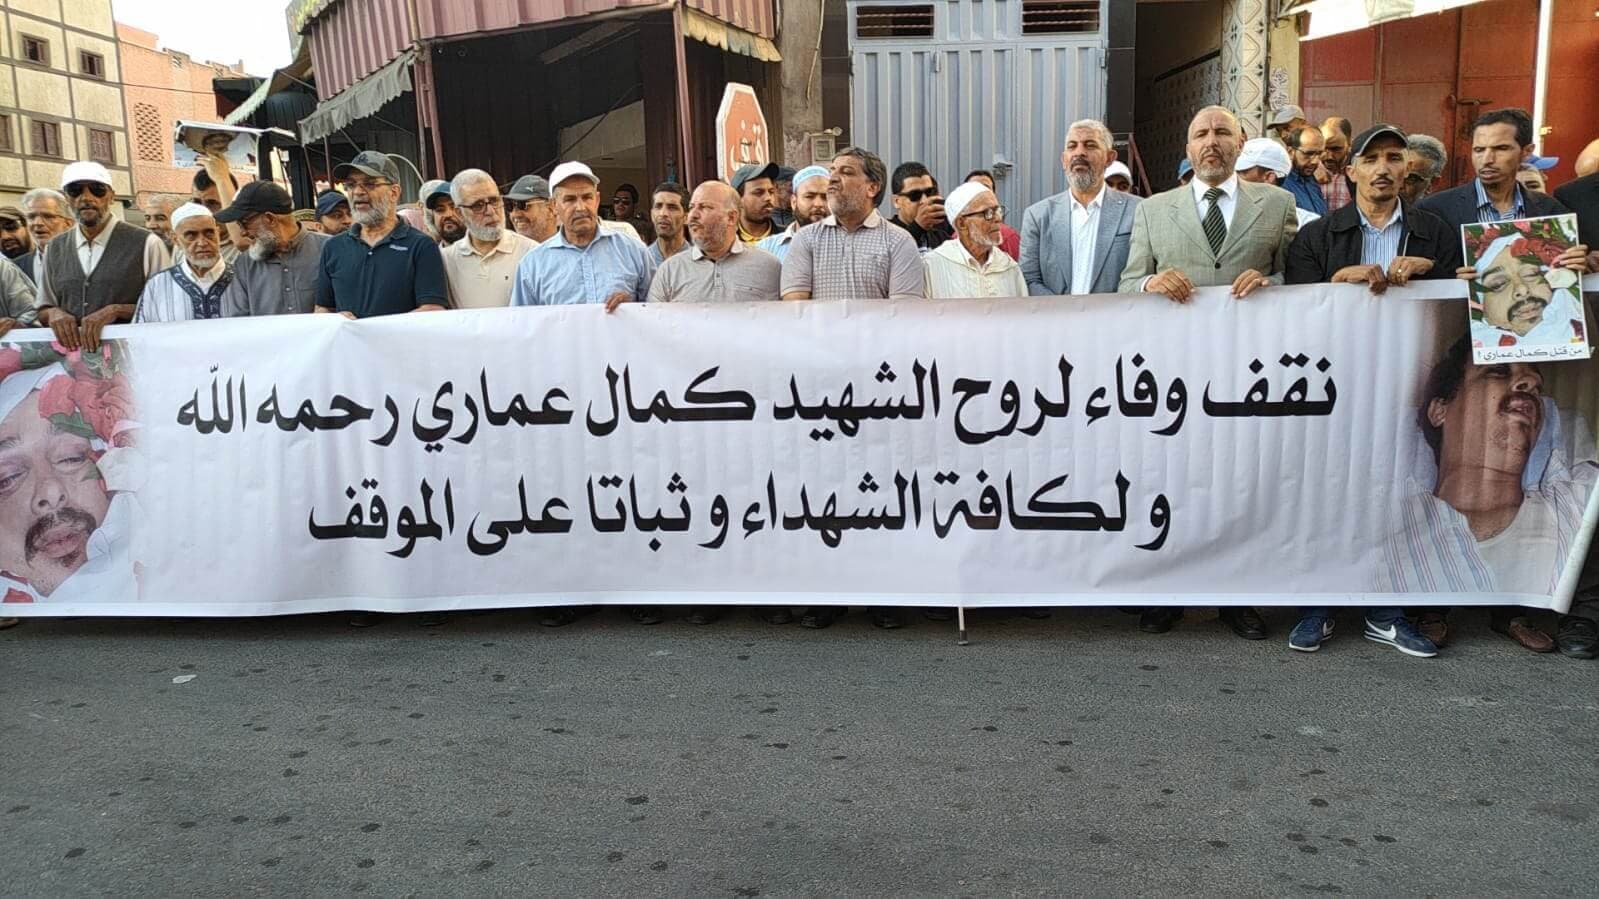 قف
نقف وفاء لروح الشهيد كمال عماري رحمه الله
و لكافة الشهداء و ثباتا على الموقف
من قتل كمال عماري ؟